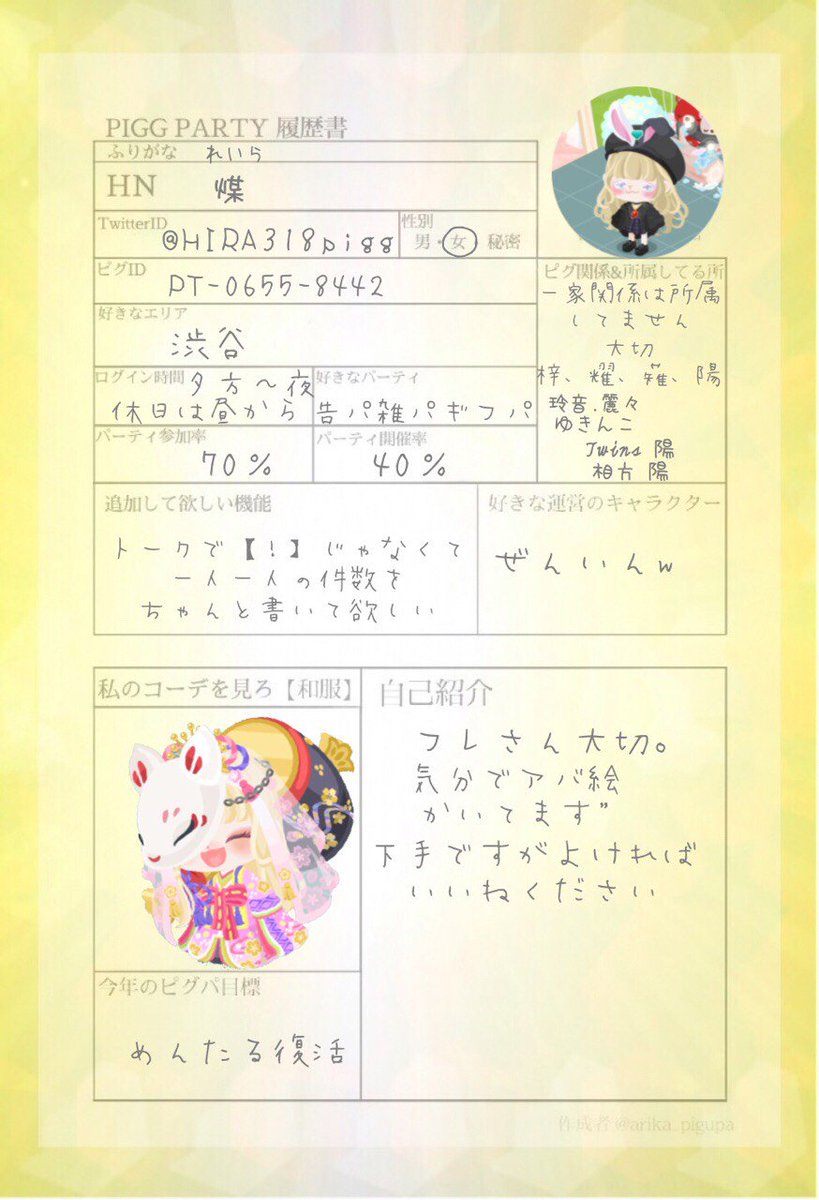 PIGG PARTY 履歴書
ふりがな れいら
HN 煤
TwitterID
@HIRA318pigg
性別
男・女 秘密
ピグID
PT-0655-8442
好きなエリア
渋谷
ログイン時間 夕方〜夜
休日は昼から
好きなパーティ
告パ雑パギフパ
パーティ参加率
70%
パーティ開催率
40%
ピグ関係&所属してる所
一家関係は所属
してません
大切
梓、耀、薙、陽
玲音.麗々
ゆきんこ
Twins 陽
相方 陽
追加して欲しい機能
トークで【!】じゃなくて
一人一人の件数を
ちゃんと書いて欲しい
好きな運営のキャラクター
ぜんいんw
私のコーデを見ろ【和服】
自己紹介
フレさん大切。
気分でアバ絵
かいてます”
下手ですがよければ
いいねください
今年のピグパ目標
めんたる復活
作成者@arika_pigupa